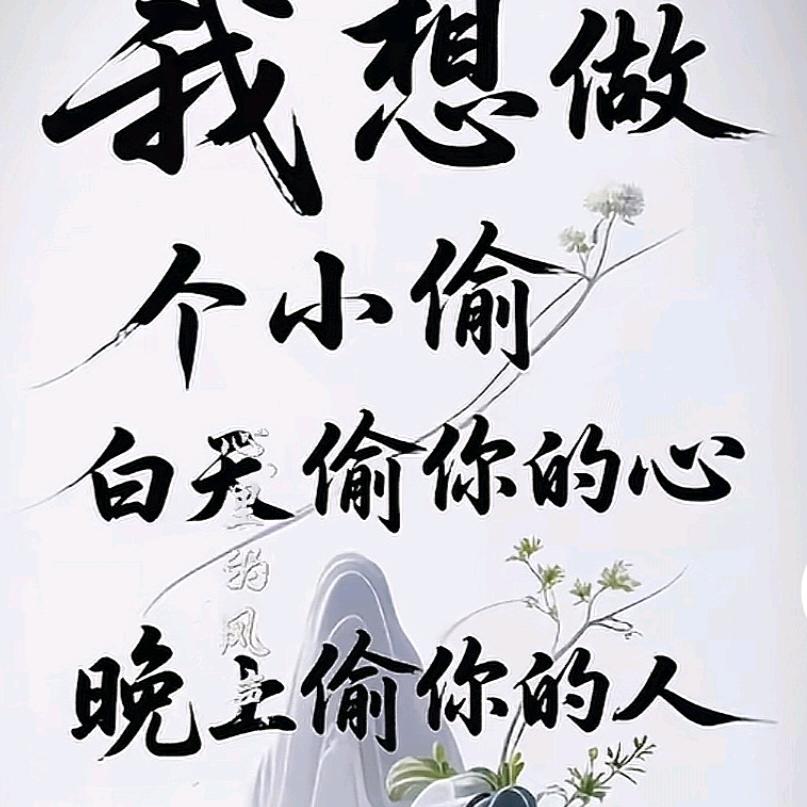 我想做
个小偷
白天偷你的心
晚上偷你的人